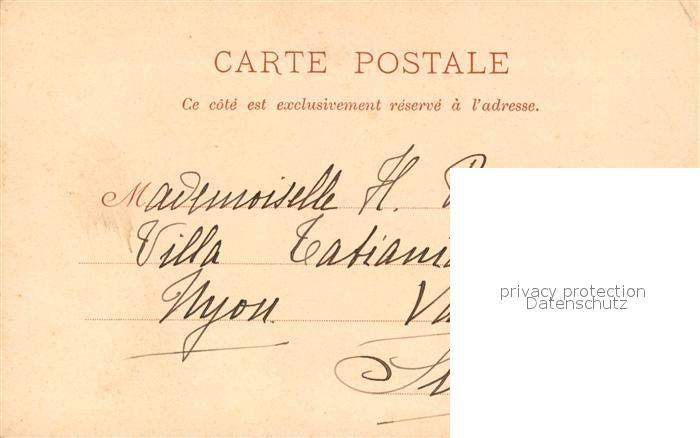 CARTE POSTALE
Ce côté est exclusivement réservé à l'adresse.
Mademoiselle H.
Villa
Nyon
privacy protection
Datenschutz